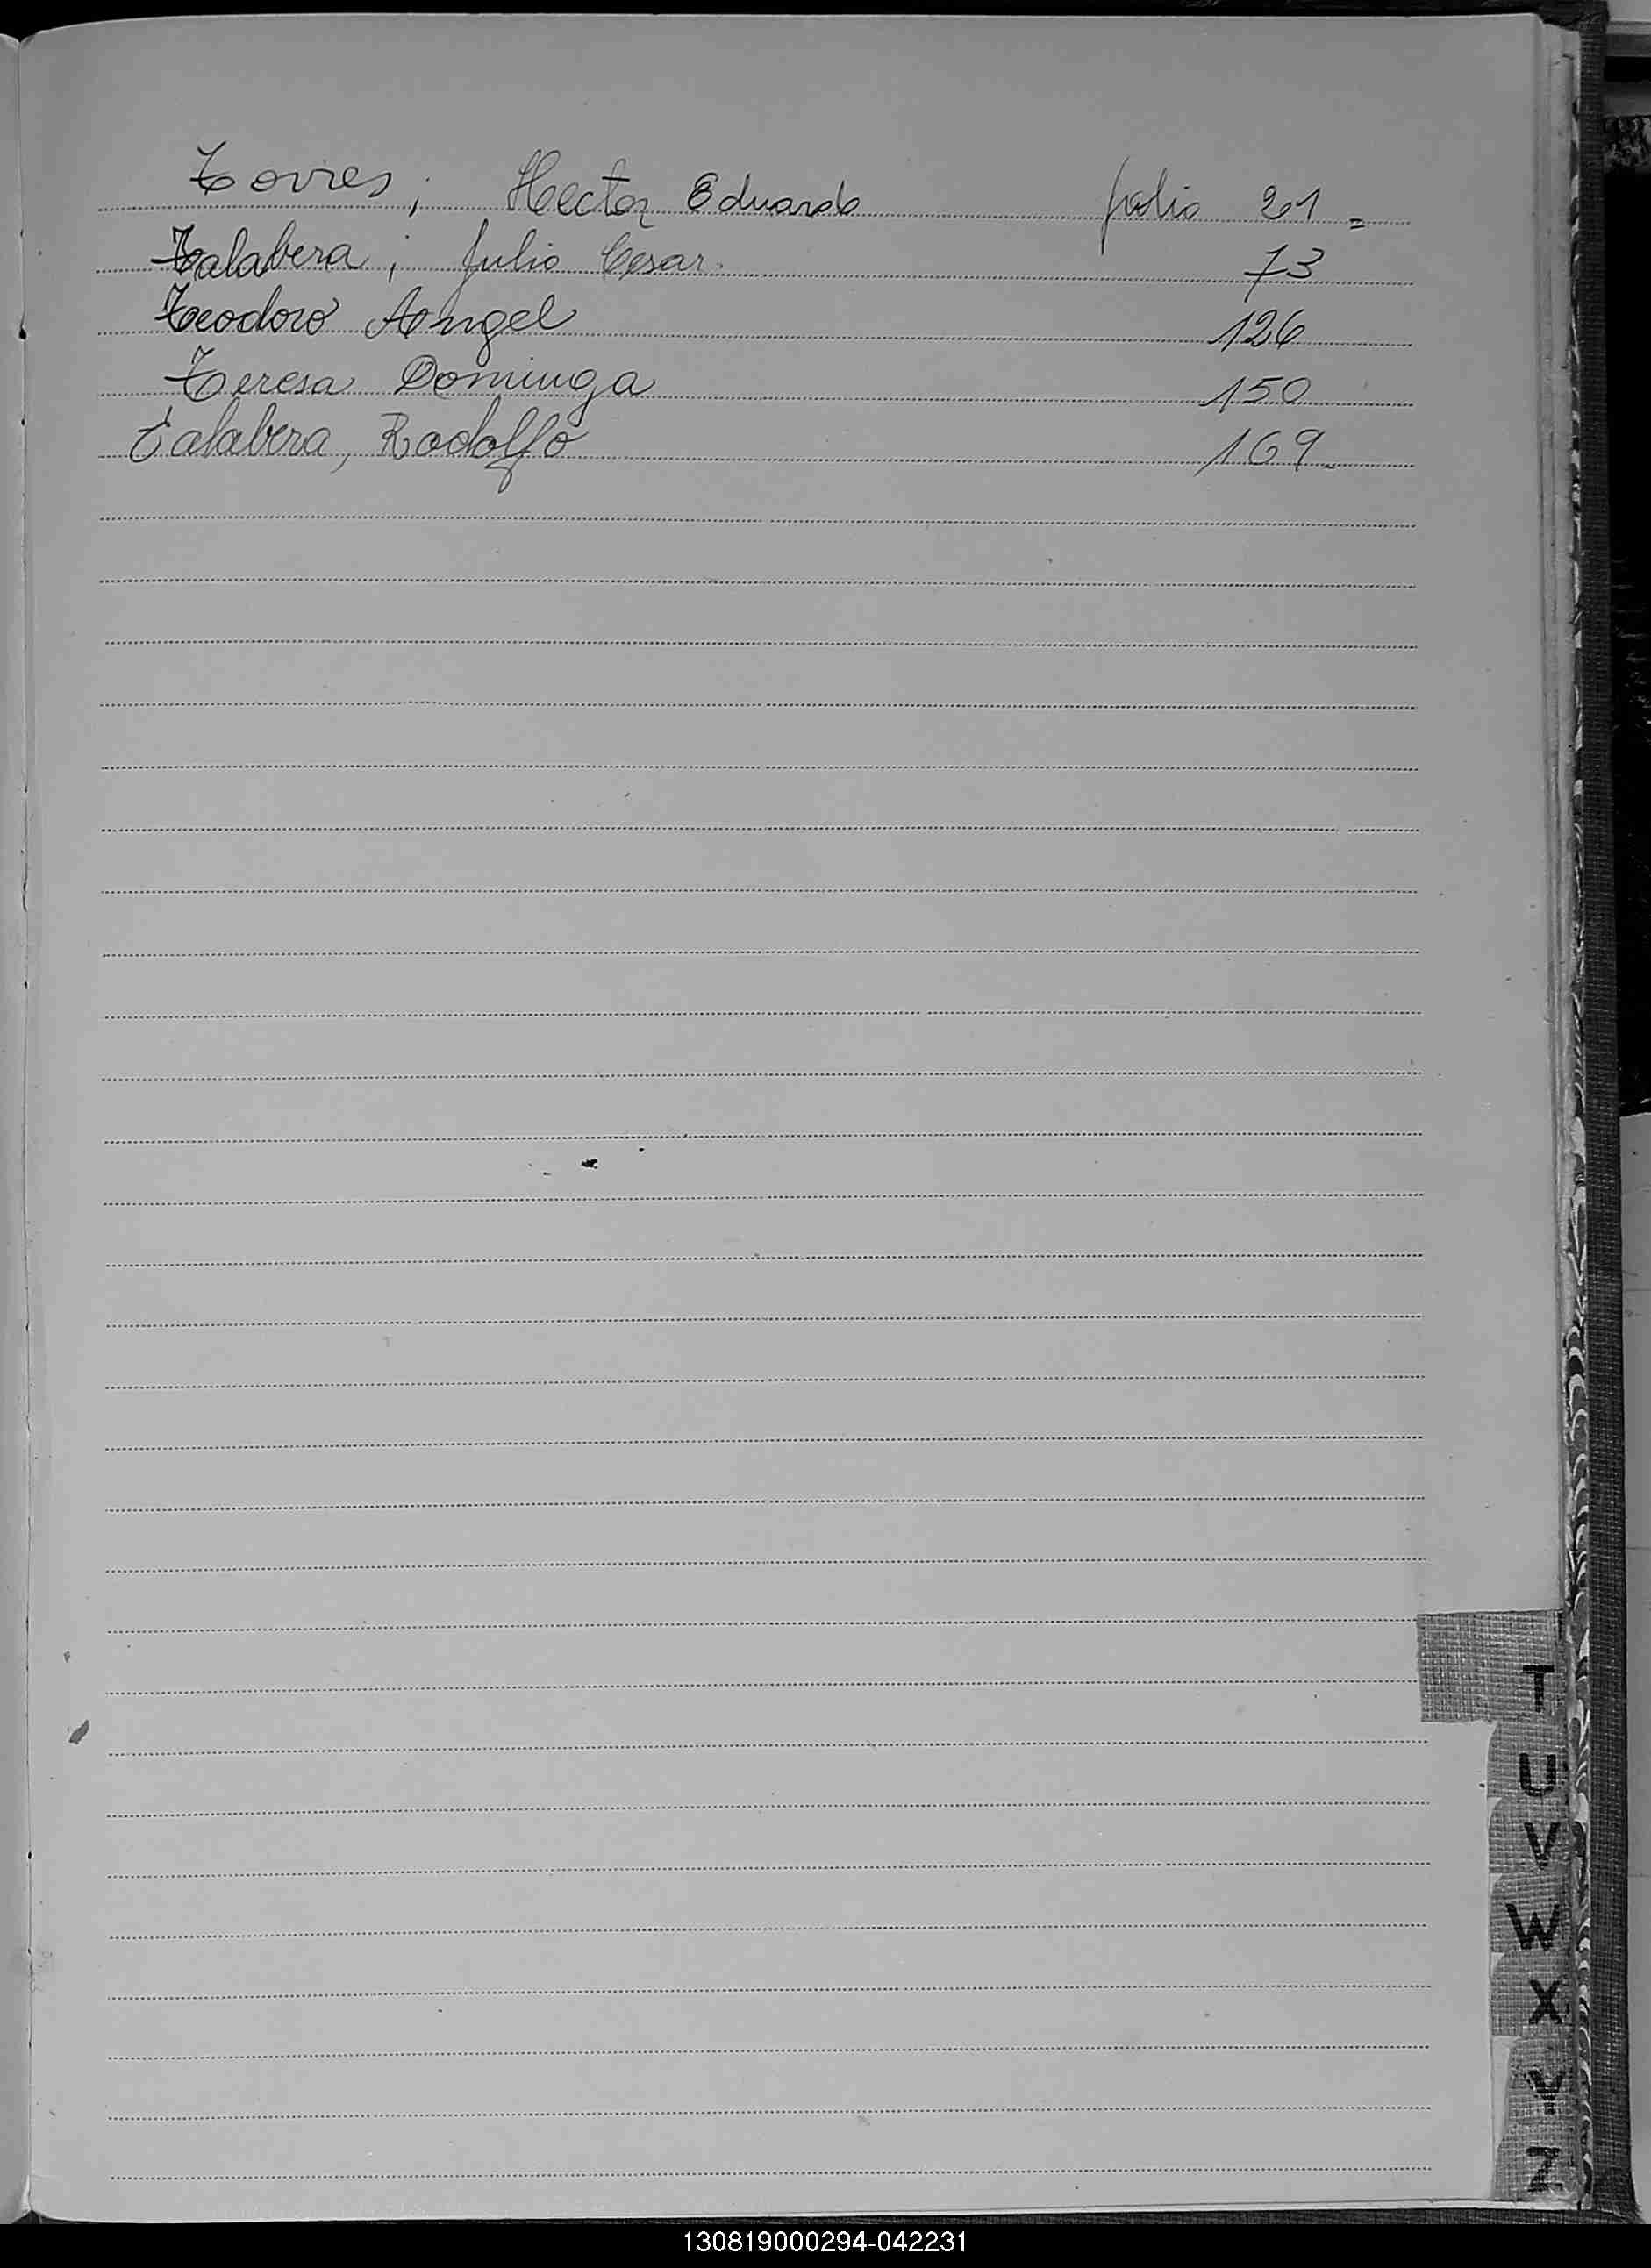 Torres; Hector Eduardo folio 21=
Talabera; Julio Cesar. 73
Teodoro Angel 126
Teresa Dominga 150
Talabera, Rodolfo 169-
T
U
V
W
X
Y
Z
130819000294-042231